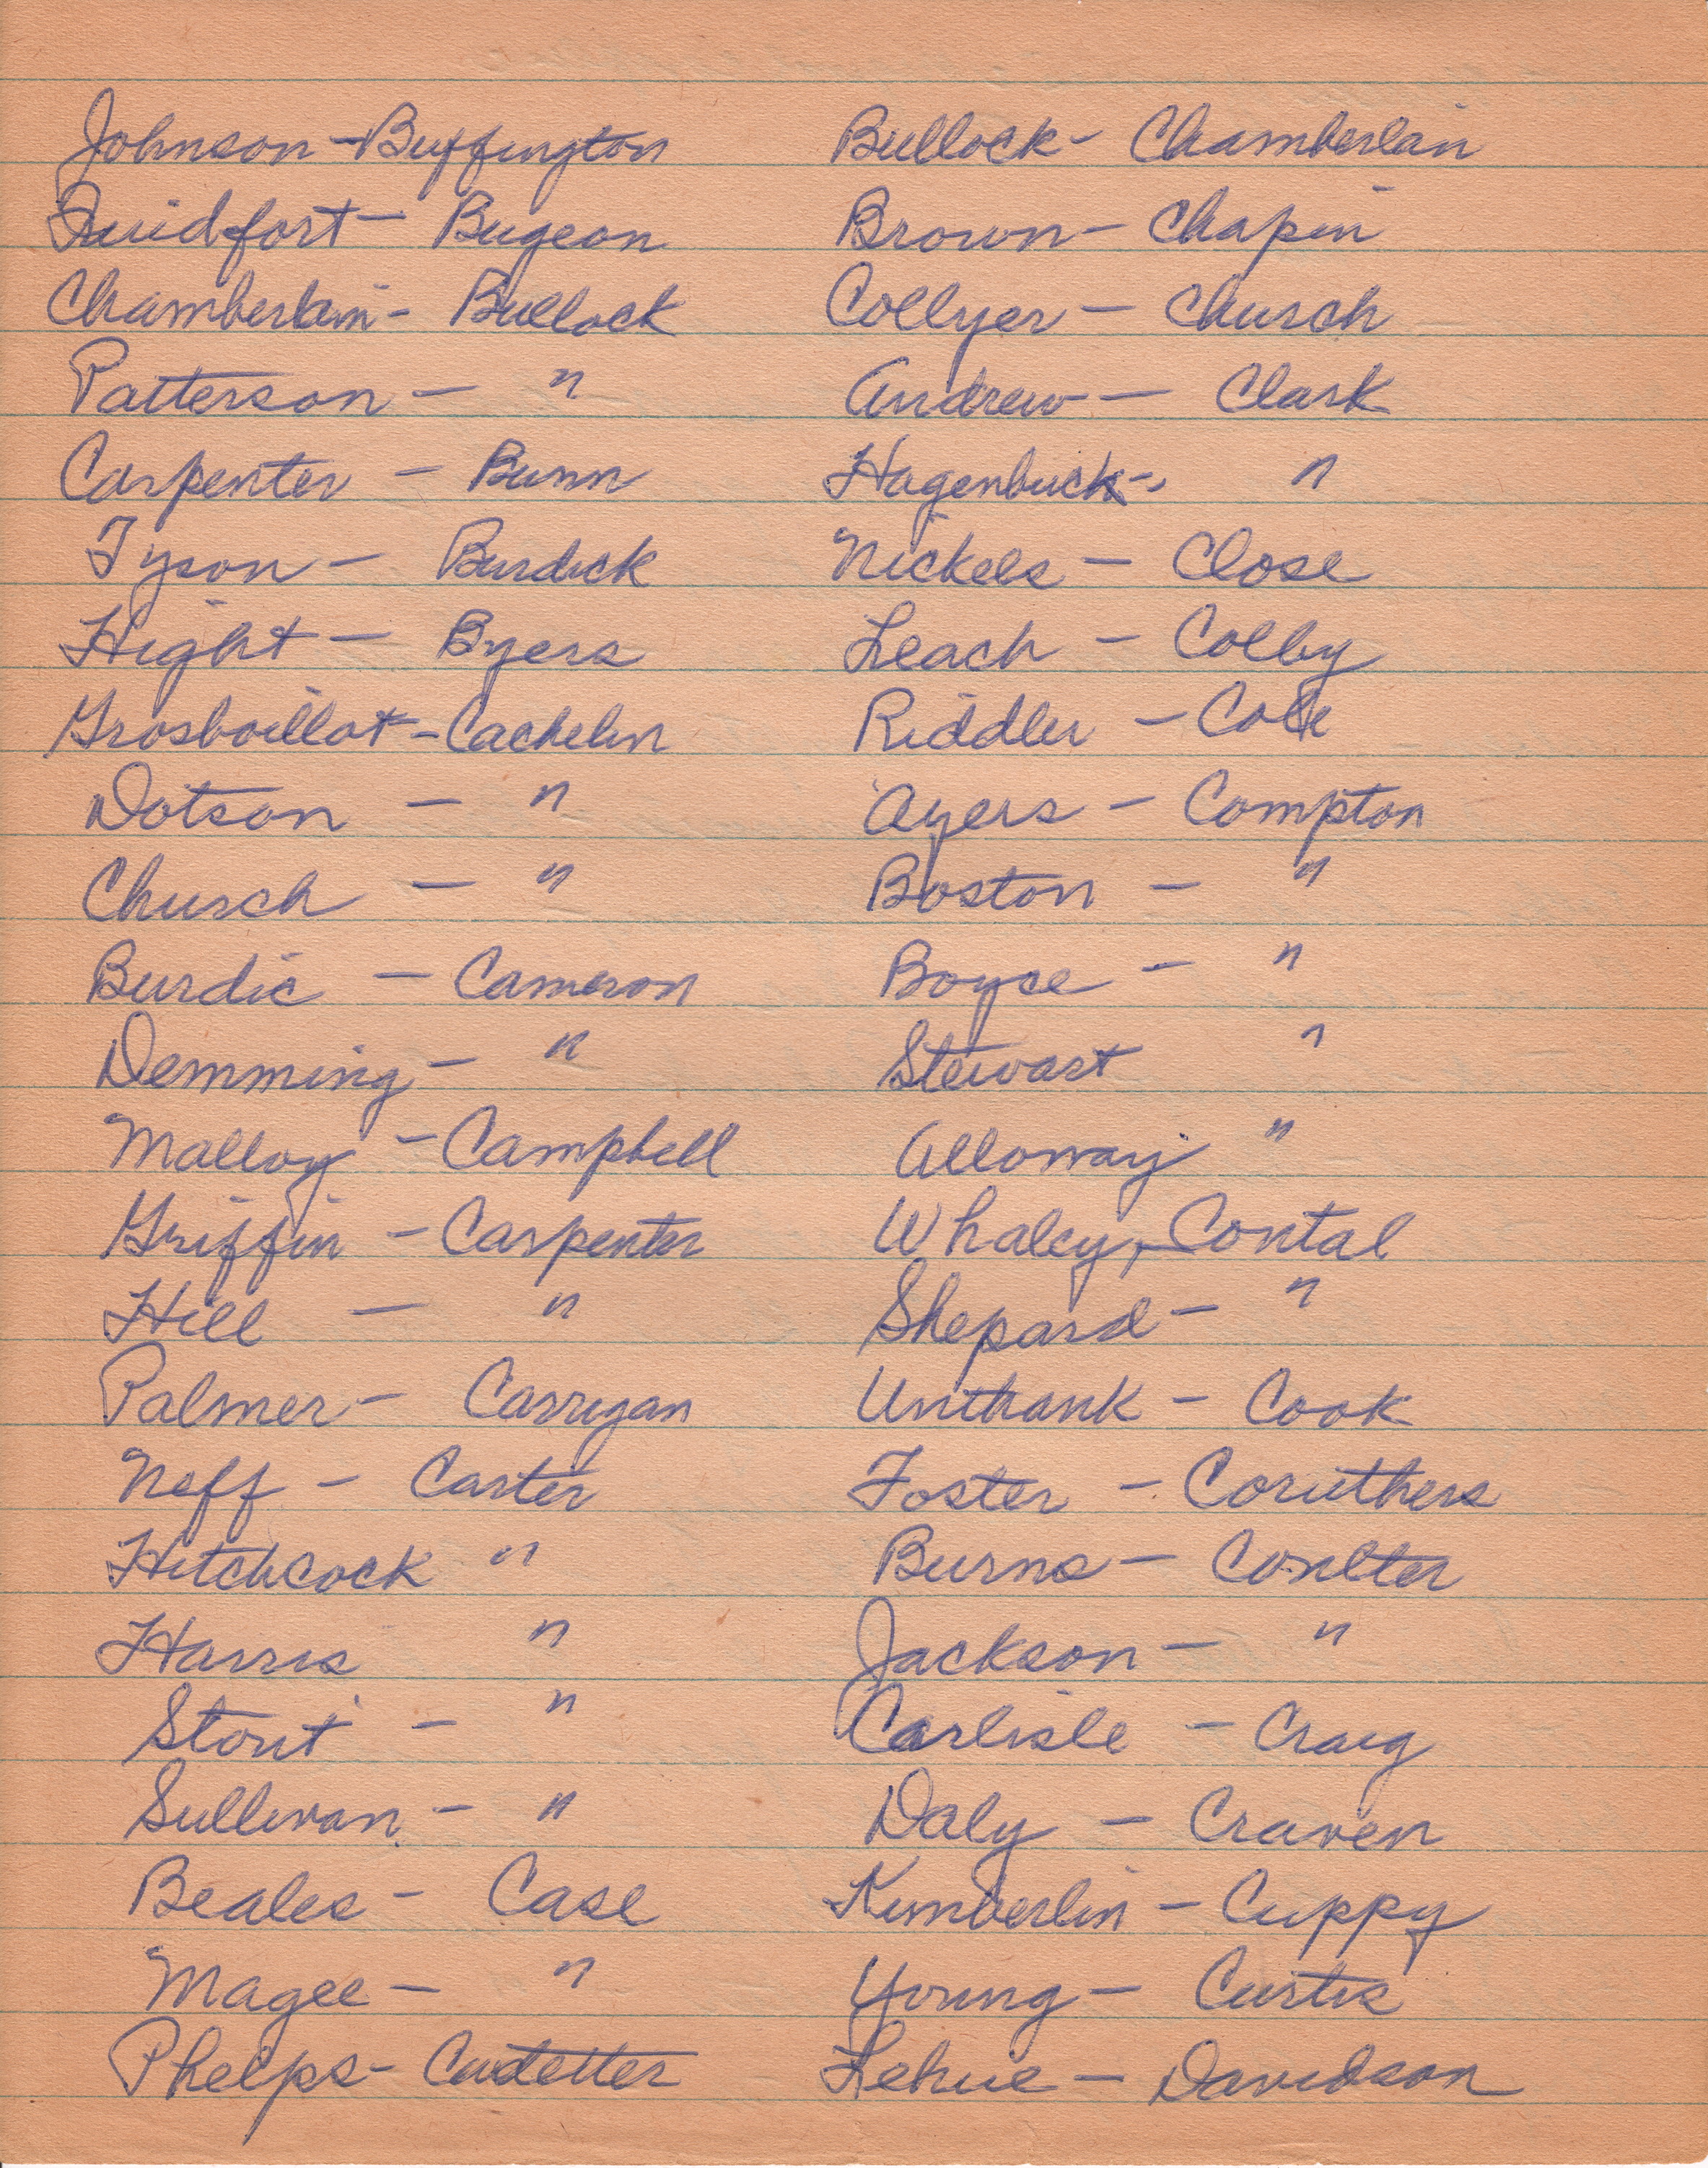 Johnson - Buffington
Quidfort - Bugeon
Chamberlain - Bullock
Patterson - "
Carpenter - Bunn
Tyson - Burdick
Hight - Byers
Grosboillot - Cachelin
Dotson - "
Church - "
Burdic - Cameron
Demming - "
Malloy - Campbell
Griffin - Carpenter
Hill - "
Palmer - Carrigan
Neff - Carter
Hitchcock "
Harris "
Stout - "
Sullivan - "
Beales - Case
Magee - "
Phelps -
Bullock - Chamberlain
Brown - Chapin
Collyer - Church
Andrew - Clark
Hagenbuck - "
Nickels - Close
Leach - Colby
Riddler - Cole
Ayers - Compton
Boston - "
Boyce - "
Stewart "
Alloway "
Whaley, - Contal
Shepard - "
Unthank - Cook
Foster - Coruthers
Burns - Coulter
Jackson - "
Carlisle - Craig
Daly - Craven
Kimberlin - Cuppy
Young - Curtis
Lehue - Davidson